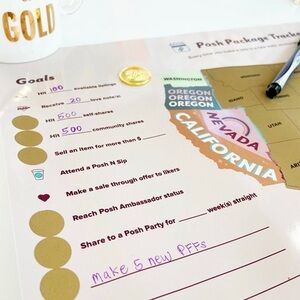 GOLD
Posh Package Tracke
Goals
Hit 100 available listings
Receive 20 love note(s)
Hit 500 self-shares
Hit 500 community shares
Sell an item for more than $
Attend a Posh N Sip
Make a sale through offer to likers
Reach Posh Ambassador status
Share to a Posh Party for week(s) straight
make 5 new PFFs
WASHINGTON
OREGON
OREGON
OREGON
NEVADA
CALIFORNIA
IDAHO
UTAH
ARIZONA